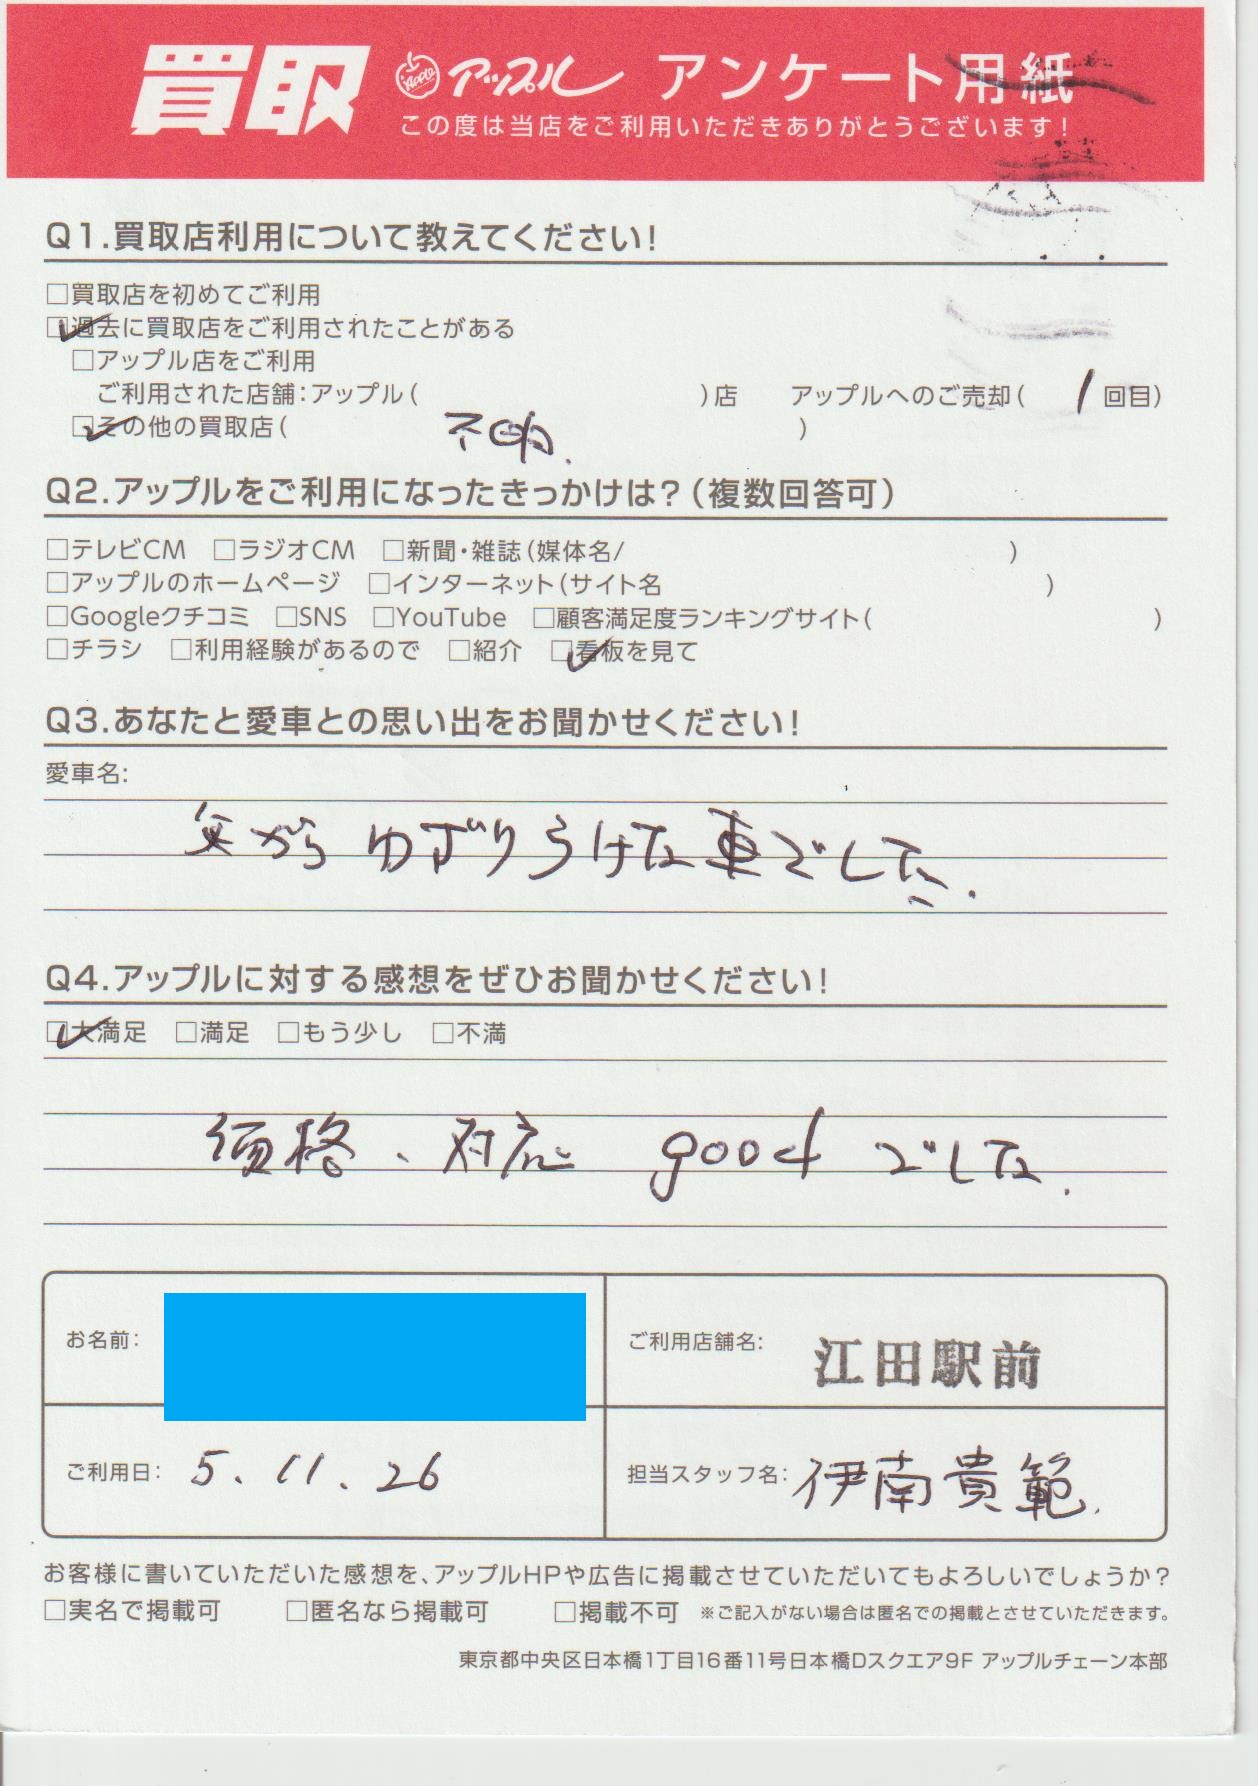 買取 Apple アップル アンケート用紙
この度は当店をご利用いただきありがとうございます!
Q1.買取店利用について教えてください!
□買取店を初めてご利用
☑過去に買取店をご利用されたことがある
□アップル店をご利用
ご利用された店舗:アップル( )店 アップルへのご売却( 1 回目)
☑その他の買取店( 不明. )
Q2.アップルをご利用になったきっかけは?(複数回答可)
□テレビCM □ラジオCM □新聞・雑誌(媒体名/ )
□アップルのホームページ □インターネット(サイト名 )
□Googleクチコミ □SNS □YouTube □顧客満足度ランキングサイト( )
□チラシ □利用経験があるので □紹介 ☑看板を見て
Q3.あなたと愛車との思い出をお聞かせください!
愛車名:
父から ゆずりうけた車でした.
Q4.アップルに対する感想をぜひお聞かせください!
☑大満足 □満足 □もう少し □不満
価格、対応 good でした.
お名前: ご利用店舗名: 江田駅前
ご利用日: 5.11.26 担当スタッフ名: 伊南貴範.
お客様に書いていただいた感想を、アップルHPや広告に掲載させていただいてもよろしいでしょうか?
□実名で掲載可 □匿名なら掲載可 □掲載不可 ※ご記入がない場合は匿名での掲載とさせていただきます。
東京都中央区日本橋1丁目16番11号日本橋Dスクエア9F アップルチェーン本部